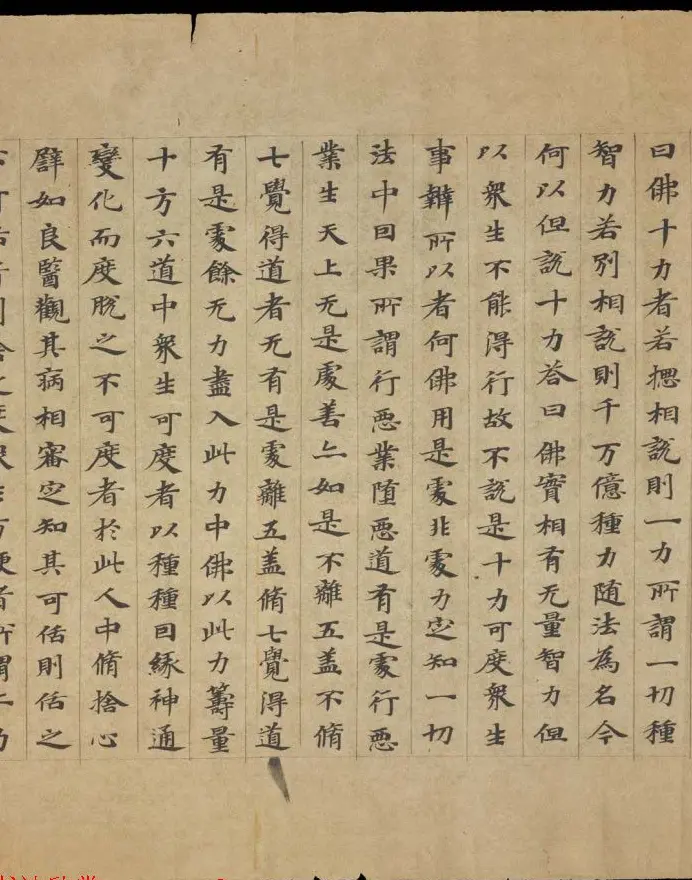 曰佛十力者若揔相說則一力所謂一切種
智力若別相說則千万億種力随法為名今
何以但說十力荅曰佛實相有无量智力但
以衆生不能得行故不說是十力可度衆生
事辦所以者何佛用是處非處力定知一切
法中因果所謂行惡業墮惡道有是處行惡
業生天上无是處善亦如是不離五盖不脩
七覺得道者无有是處離五盖脩七覺得道
有是處餘无力盡入此力中佛以此力籌量
十方六道中衆生可度者以種種因緣神通
變化而度脫之不可度者於此人中脩捨心
譬如良醫觀其病相審定知其可活則活之